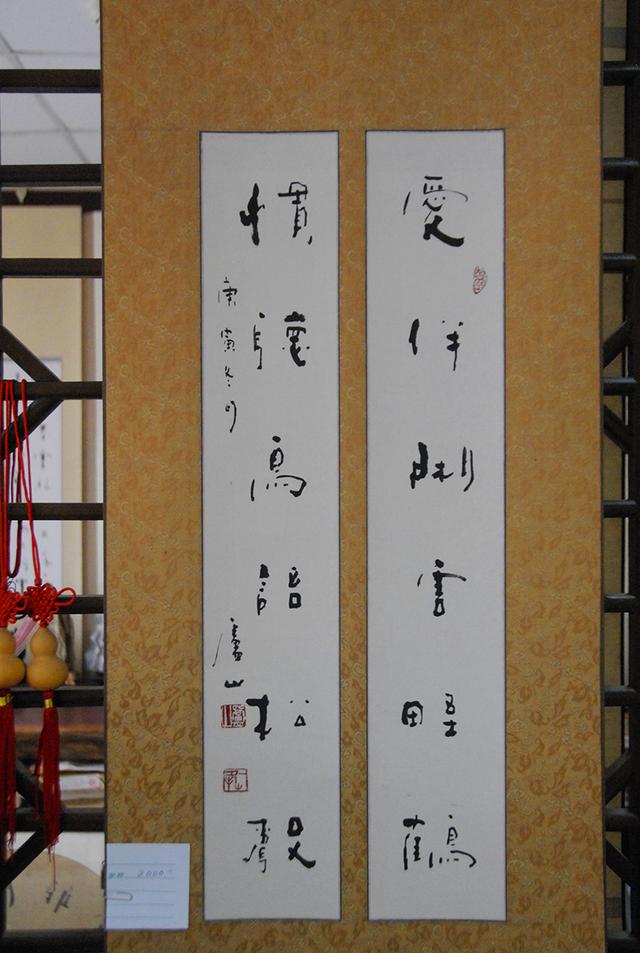 愛伴閑雲野鶴
慣聽鳥語松聲
庚寅冬月
山
2000